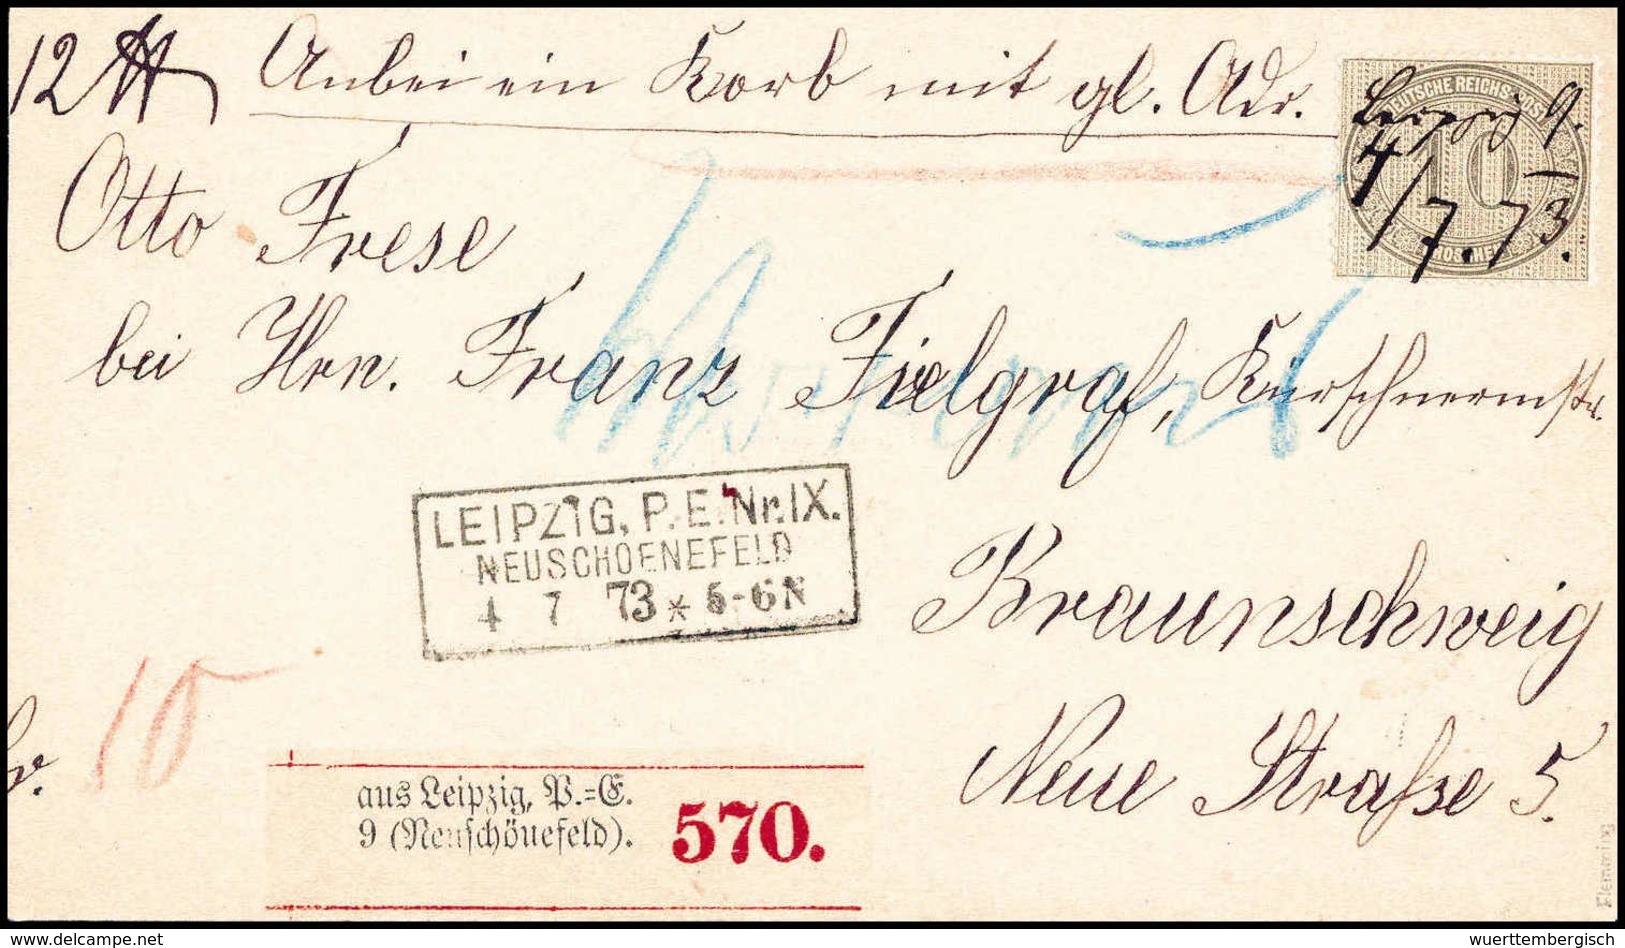 12 ℔ Anbei ein Korb mit gl. Adr.
DEUTSCHE REICHS-POST
10
Leipzig 9.
4/7. 73.
Otto Frese
bei Hrn. Franz Fielgraf, Kürschnermstr.
LEIPZIG, P. E. Nr. IX.
NEUSCHOENEFELD
4 7 73 * 5-6N
Braunschweig
Neue Straße 5.
fr. 10
aus Leipzig, P.=E.
9 (Neuschönefeld).
570.
Flemming
delcampe.net
wuerttembergisch